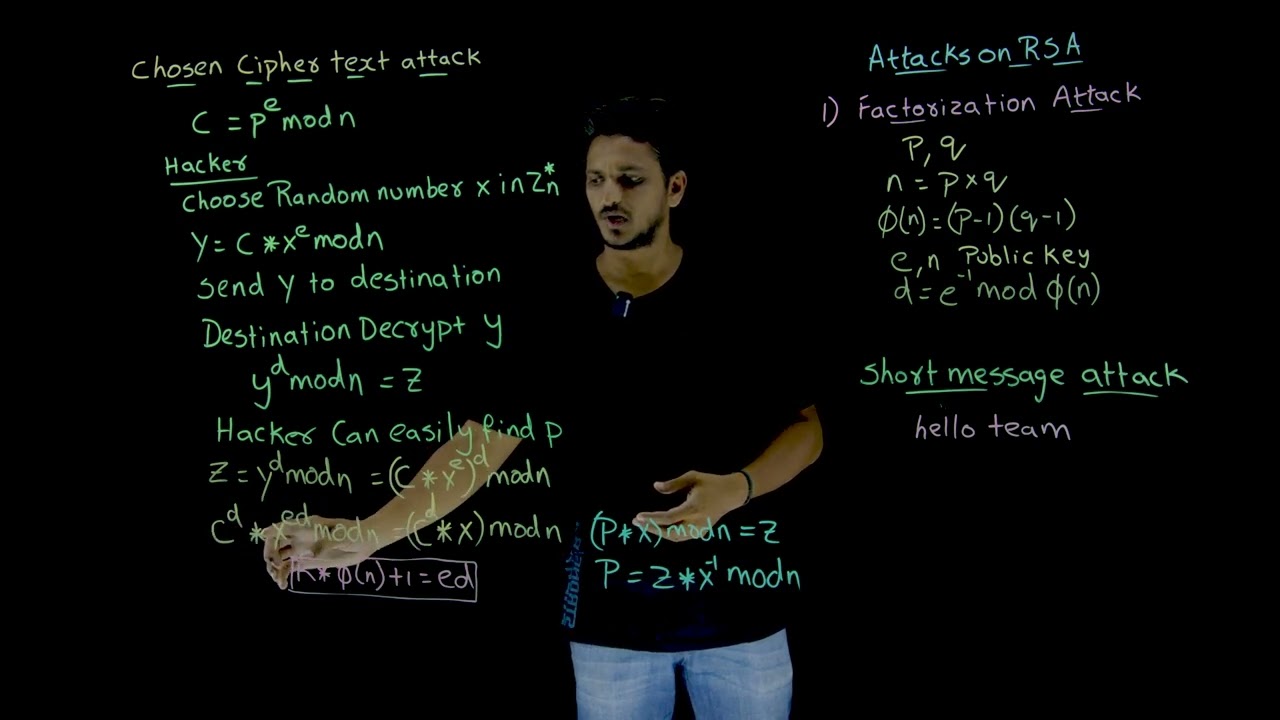 Chosen Cipher text attack
C = p^e mod n
Hacker
choose Random number x in Z*n
Y = C * x^e mod n
send Y to destination
Destination Decrypt y
y^d mod n = z
Hacker Can easily find p
Z = y^d mod n = (C * x^e)^d mod n
C^d * x^ed mod n = (C^d * x) mod n
(P * x) mod n = Z
K * φ(n) + 1 = ed
P = Z * x^-1 mod n
Attacks on RSA
1) Factorization Attack
P, q
n = p × q
φ(n) = (P-1) (q-1)
e, n Public key
d = e^-1 mod φ(n)
Short message attack
hello team